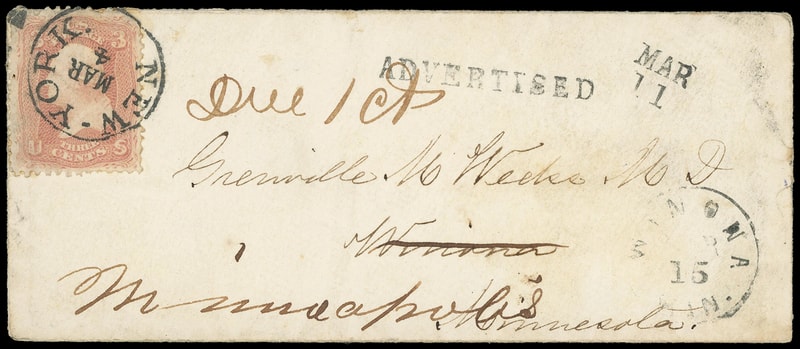 3
U S
THREE
CENTS
NEW-YORK.
MAR
4
ADVERTISED
MAR
11
Due 1 ct
Grenville M Weeks M D
Winona
Minneapolis
Minnesota.
WINONA
15
MIN